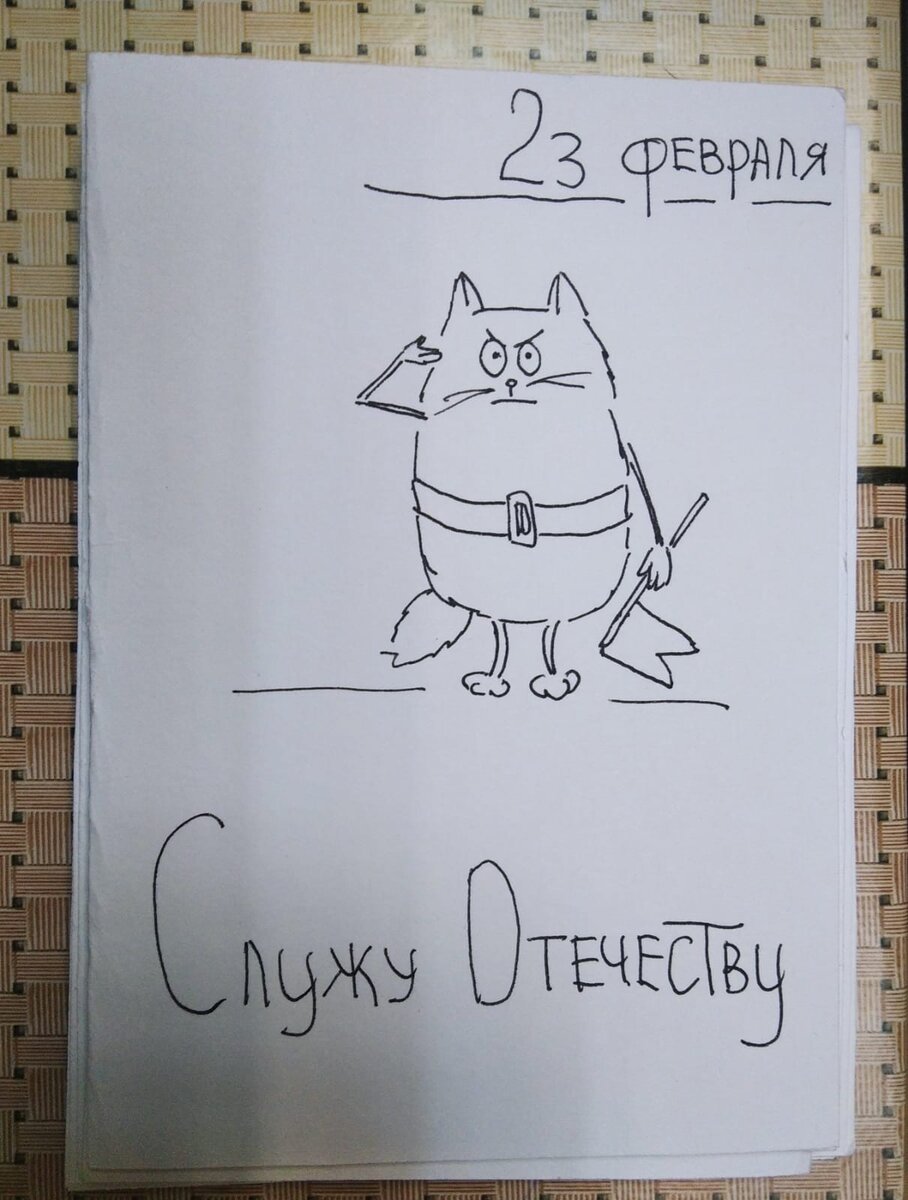 23 ФЕВРАЛЯ
Служу Отечеству